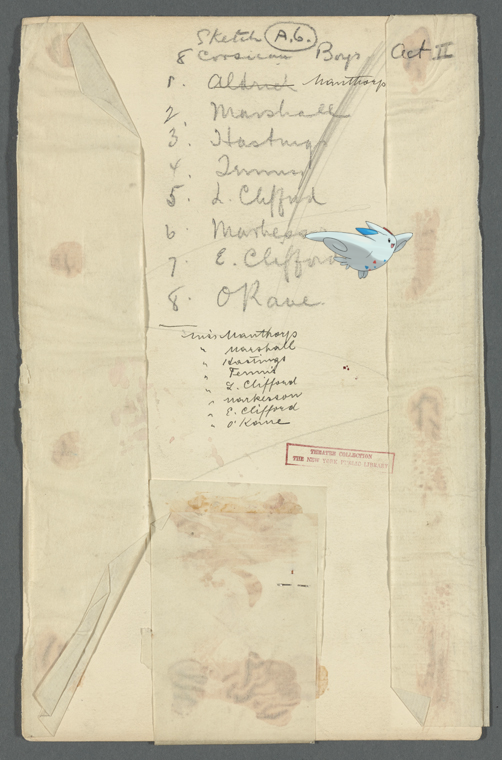 Sketch A.6.
8 Corsican Boys Act II
1. Aldrid Manthorp
2. Marshall
3. Hastings
4. Tennis
5. L. Clifford
6. Markesson
7. E. Clifford
8. O'Kane.
Miss Manthorp
" Marshall
" Hastings
" Tennis
" L. Clifford
" Markesson
" E. Clifford
" O'Kane
THEATRE COLLECTION
THE NEW YORK PUBLIC LIBRARY